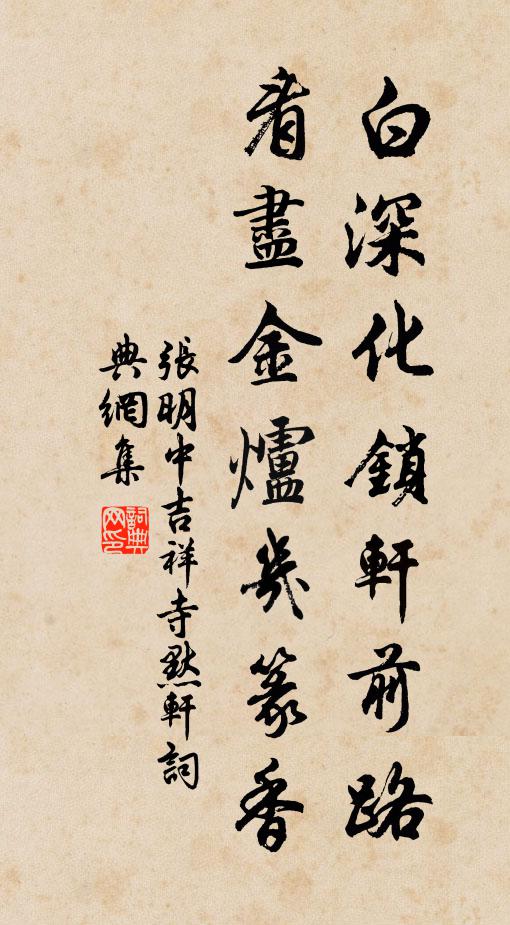 白深化鎖軒前路
看盡金爐幾篆香
張明中吉祥寺默軒詞
典網集
詞典網印